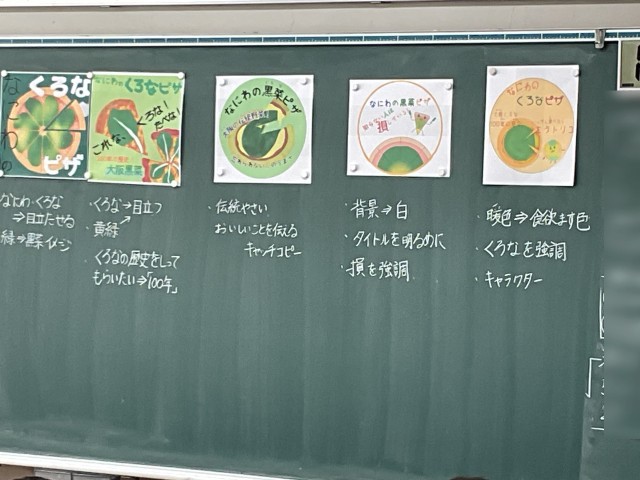 くろな
なにわの
ピザ
なにわの
くろなピザ
くろな!
たべな!
これな
大阪黒菜
なにわの黒菜ピザ
なにわの黒菜ピザ
知らない人は
損
なにわの
くろなピザ
なにわ・くろな
⇒目立たせる
緑⇒野菜イメージ
・くろな→目立つ
・黄緑
・くろなの歴史をして
もらいたい⇒「100年」
・伝統やさい
おいしいことを伝える
キャッチコピー
・背景⇒白
・タイトルを明るめに
・損を強調
・暖色⇒食欲ます色
・くろなを強調
・キャラクター